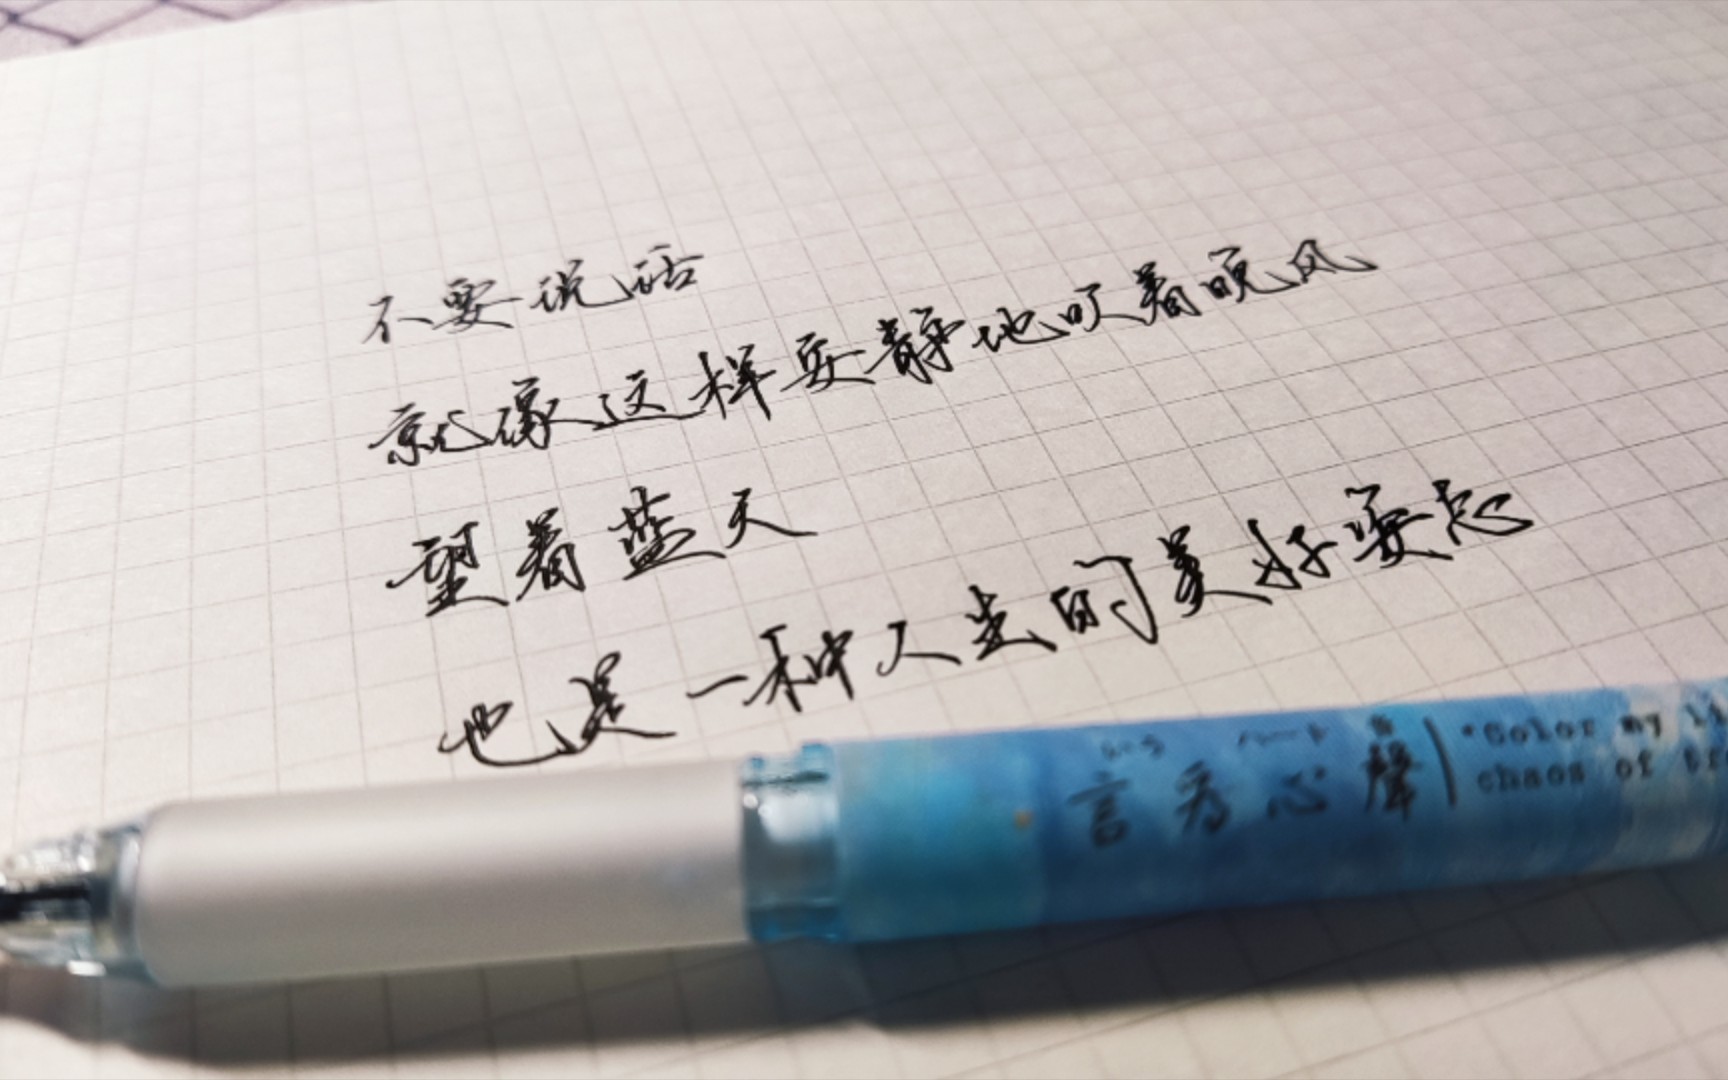 不要说话
就像这样安静地吹着晚风
望着蓝天
也是一种人生的美好姿态
言为心聲
"Color my
chaos of